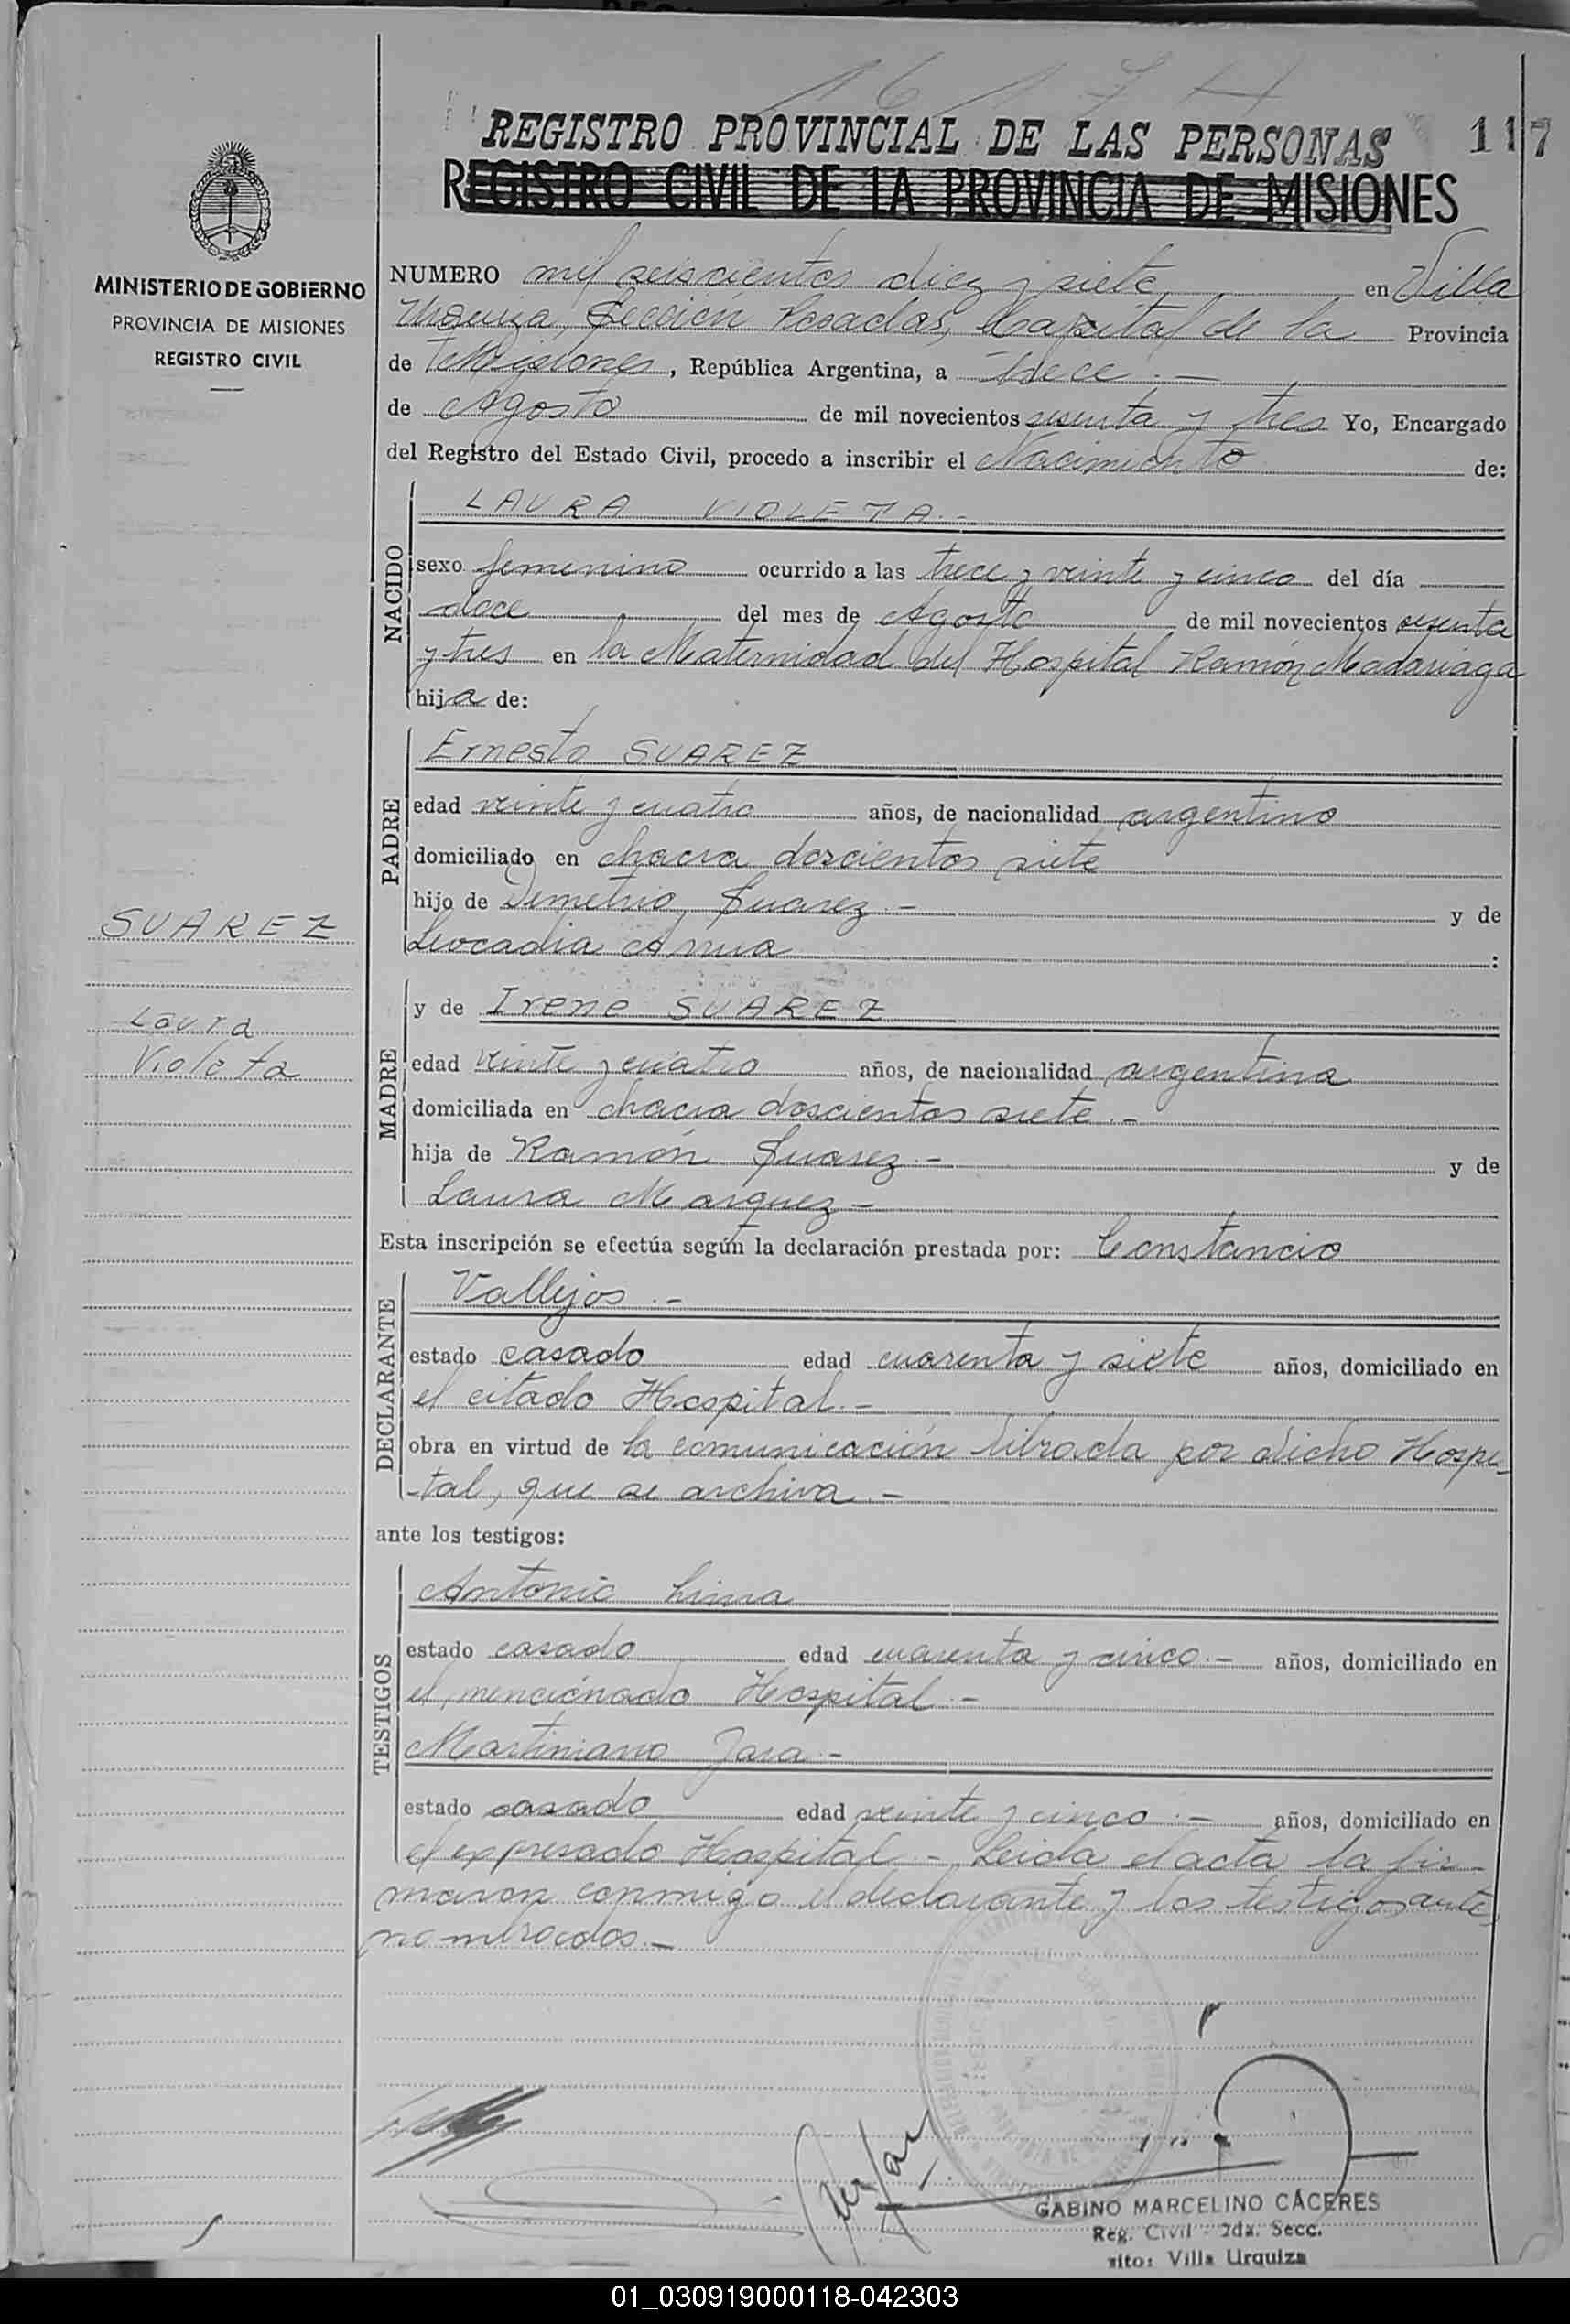 1617
REGISTRO PROVINCIAL DE LAS PERSONAS
117
REGISTRO CIVIL DE LA PROVINCIA DE MISIONES
MINISTERIO DE GOBIERNO
PROVINCIA DE MISIONES
REGISTRO CIVIL
NUMERO mil seiscientos diez y siete en Villa
Urquiza, Sección Posadas, Capital de la Provincia
de Misiones, República Argentina, a trece.-
de Agosto de mil novecientos sesenta y tres Yo, Encargado
del Registro del Estado Civil, procedo a inscribir el Nacimiento de:
NACIDO
LAURA VIOLETA.-
sexo femenino ocurrido a las trece y veinte y cinco del día
doce del mes de Agosto de mil novecientos sesenta
y tres en la Maternidad del Hospital Ramón Madariaga
hija de:
PADRE
Ernesto SUAREZ
edad veinte y cuatro años, de nacionalidad argentino
domiciliado en chacra doscientos siete
hijo de Demetrio Suarez.- y de
Leocadia :
SUAREZ
Laura
Violeta
MADRE
y de Irene SUAREZ
edad veinte y cuatro años, de nacionalidad argentina
domiciliada en chacra doscientos siete.-
hija de Ramón Suarez.- y de
Laura Marquez-
Esta inscripción se efectúa según la declaración prestada por: Constancio
DECLARANTE
Vallejos.-
estado casado edad cuarenta y siete años, domiciliado en
el citado Hospital.-
obra en virtud de la comunicación librada por dicho Hospi-
-tal, que se archiva.-
ante los testigos:
TESTIGOS
Antonio Lima
estado casado edad cuarenta y cinco.- años, domiciliado en
el mencionado Hospital.-
Martiniano Jara.-
estado casado edad veinte y cinco.- años, domiciliado en
el expresado Hospital.- Leida el acta la fir-
maron conmigo el declarante y los testigos ante
nombrados.-
GABINO MARCELINO CÁCERES
Reg. Civil - 2da. Secc.
sito: Villa Urquiza
01_030919000118-042303